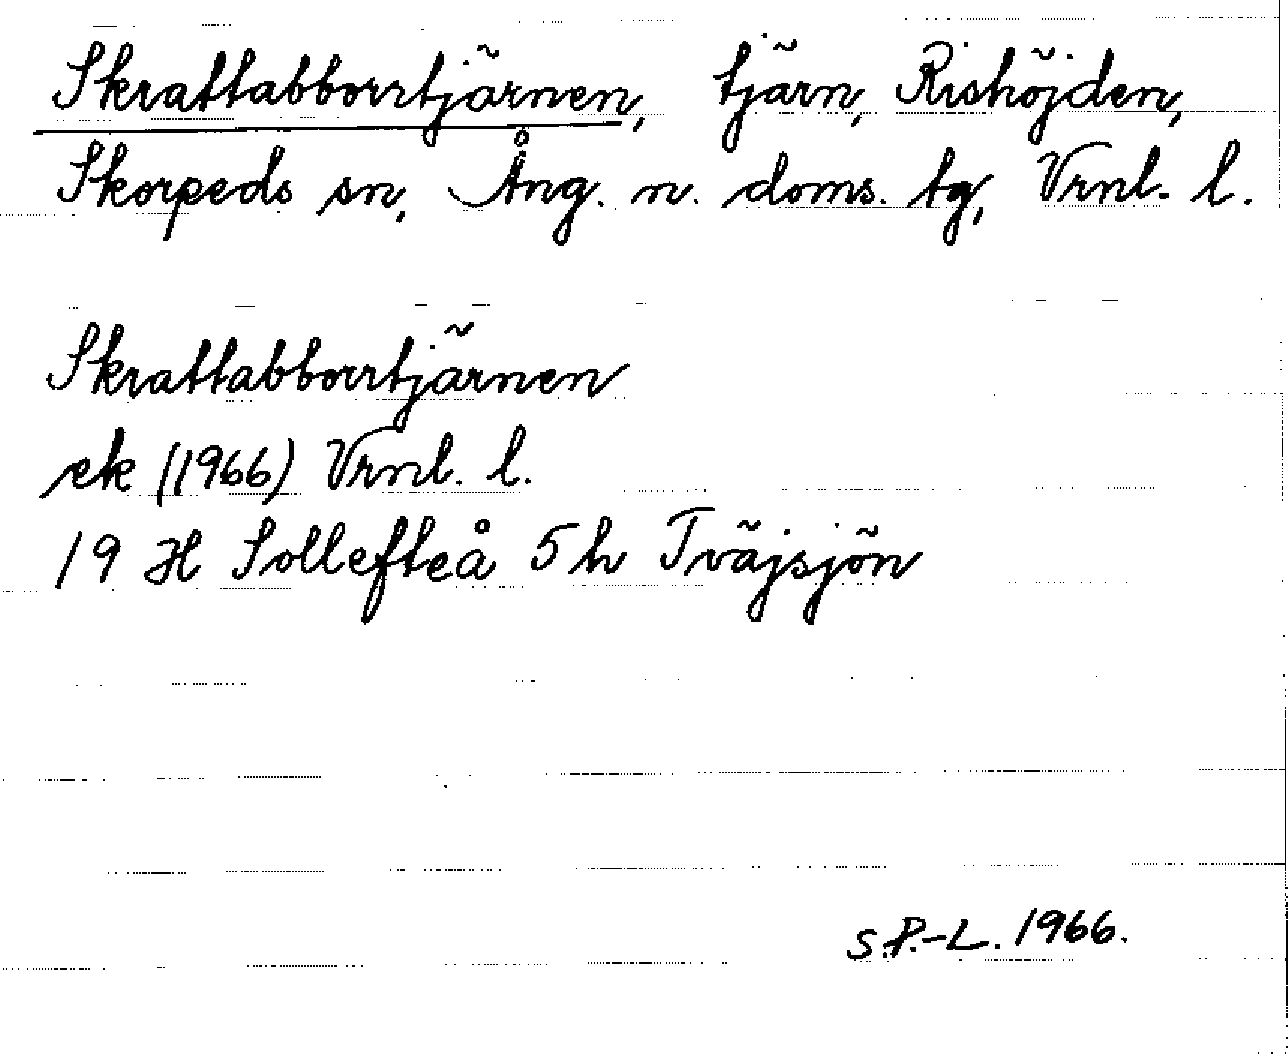 Skrattabborrtjärnen, tjärn, Rishöjden,
Skorpeds sn, Ång. n. doms. tg, Vrnl. l.
Skrattabborrtjärnen
ek (1966) Vrnl. l.
19 H Sollefteå 5 h Tväjsjön
S.P.-L. 1966.